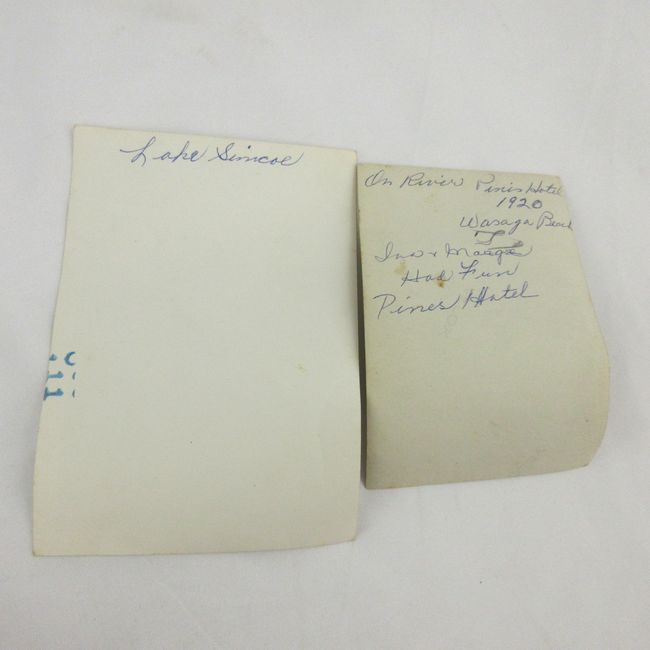 Lake Simcoe
On River Pines Hotel
1920
Wasaga Beach
Ina & Marge
Had Fun
Pines Hotel